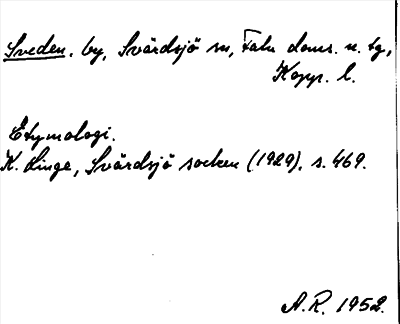 Sveden. by, Svärdsjö sn, Falu doms. n. tg,
Kopp. l.
Etymologi.
K. Linge, Svärdsjö socken (1929). s. 469.
A.R. 1952.